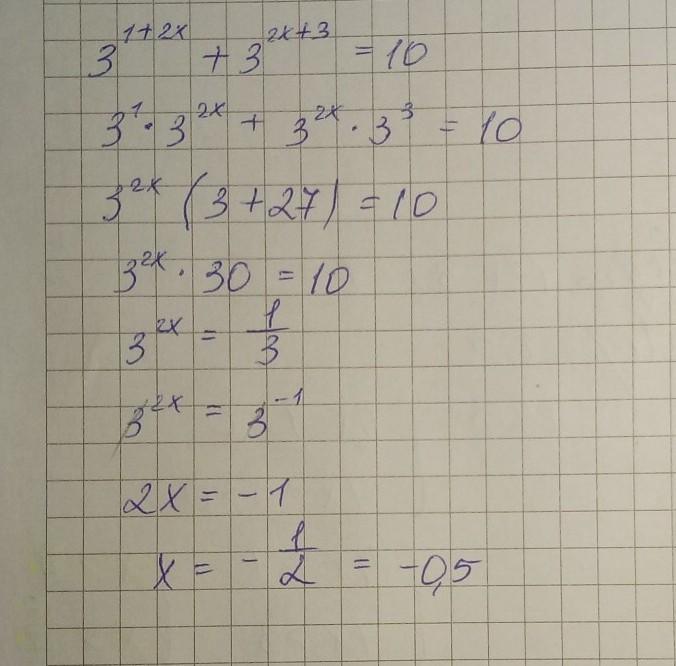 3^{1+2x} + 3^{2x+3} = 10
3^1 · 3^{2x} + 3^{2x} · 3^3 = 10
3^{2x} (3 + 27) = 10
3^{2x} · 30 = 10
3^{2x} = \frac{1}{3}
3^{2x} = 3^{-1}
2x = -1
x = -\frac{1}{2} = -0,5